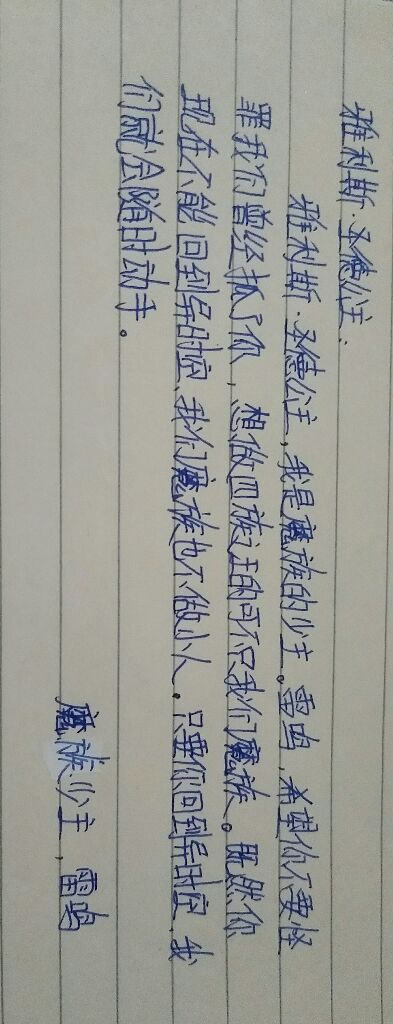 雅利斯·圣德公主：
雅利斯·圣德公主，我是魔族的少主。雷鸣，希望你不要怪
罪我们曾经抓了你，想做四族之王的可不只我们魔族。既然你
现在不能回到异时空，我们魔族也不做小人。只要你回到异时空，我
们就会随时动手。
魔族少主，雷鸣